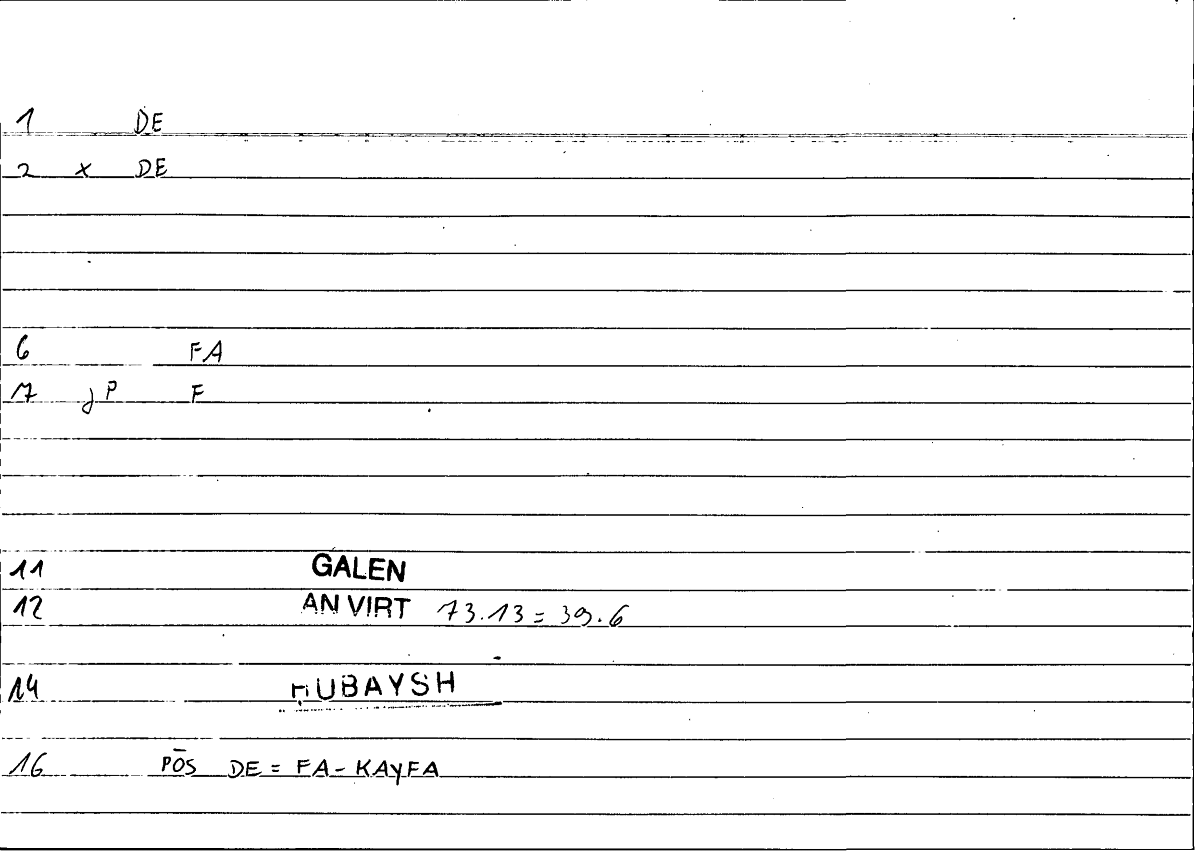 1 DE
2 x DE
6 FA
7 jP F
11 GALEN
12 AN VIRT 73.13 = 39.6
14 ḤUBAYSH
16 PŌS DE = FA-KAYFA